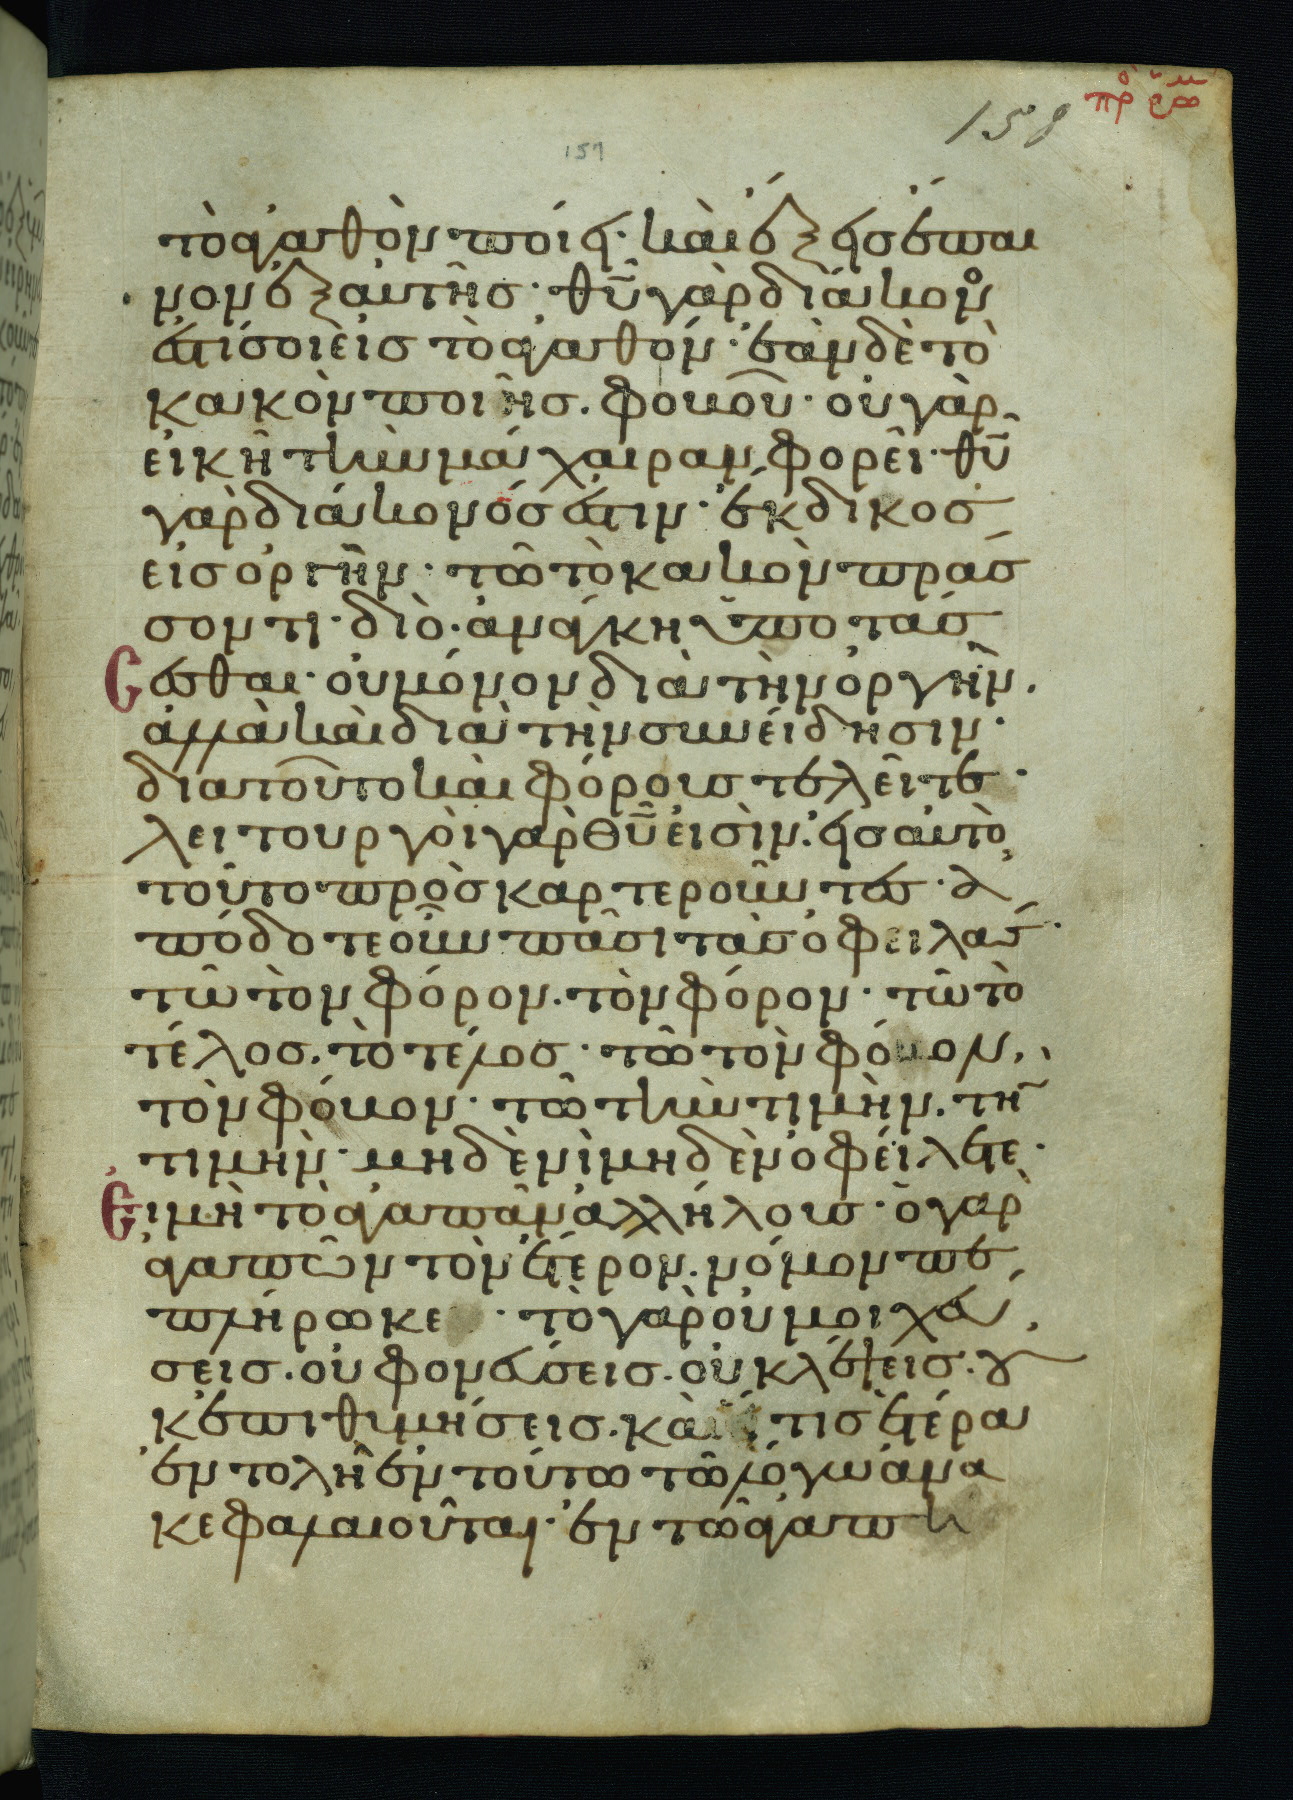 πρ ρωμ
158
157
τὸ ἀγαθὸν ποίει· καὶ ἕξεις ἔπαι
νον ἐξ αὐτῆς· θῦ γὰρ διάκονός
ἐστί σοι εἰς τὸ ἀγαθόν· ἐὰν δὲ τὸ
κακὸν ποιῆς. φοβοῦ· οὐ γὰρ
εἰκῆ τὴν μάχαιραν φορεῖ· θῦ
γὰρ διάκονός ἐστιν· ἔκδικος
εἰς ὀργὴν· τῶ τὸ κακὸν πράσ
σοντι· διὸ· ἀνάγκη ὑποτάσ
σεσθαι· οὐ μόνον διὰ τὴν ὀργὴν.
ἀλλὰ καὶ διὰ τὴν συνείδησιν·
διατοῦτο καὶ φόρους τελεῖτε·
λειτουργοὶ γὰρ θῦ εἰσὶν· εἰς αὐτὸ
τοῦτο προσκαρτεροῦντες· ἀ
πόδοτε οὖν πᾶσι τὰς ὀφειλάς·
τῶ τὸν φόρον. τὸν φόρον· τῶ τὸ
τέλος. τὸ τέλος· τῶ τὸν φόβον.
τὸν φόβον· τῶ τὴν τιμὴν. τὴν
τιμὴν· μηδενὶ μηδὲν ὀφείλετε·
Εἰ μὴ τὸ ἀγαπᾶν ἀλλήλους· ὁ γὰρ
ἀγαπῶν τὸν ἕτερον. νόμον πε
πλήρωκε· τὸ γὰρ οὐ μοιχεύ
σεις. οὐ φονεύσεις. οὐ κλέψεις. οὐ
κ ἐπιθυμήσεις. καὶ εἴ τις ἑτέρα
ἐντολὴ ἐν τούτω τῶ λόγω ἀνα
κεφαλαιοῦται· ἐν τῶ ἀγαπή